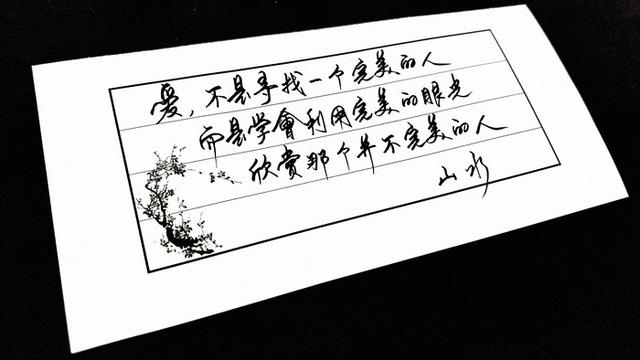 愛，不是寻找一个完美的人
而是学會利用完美的眼光
欣赏那个并不完美的人
山水